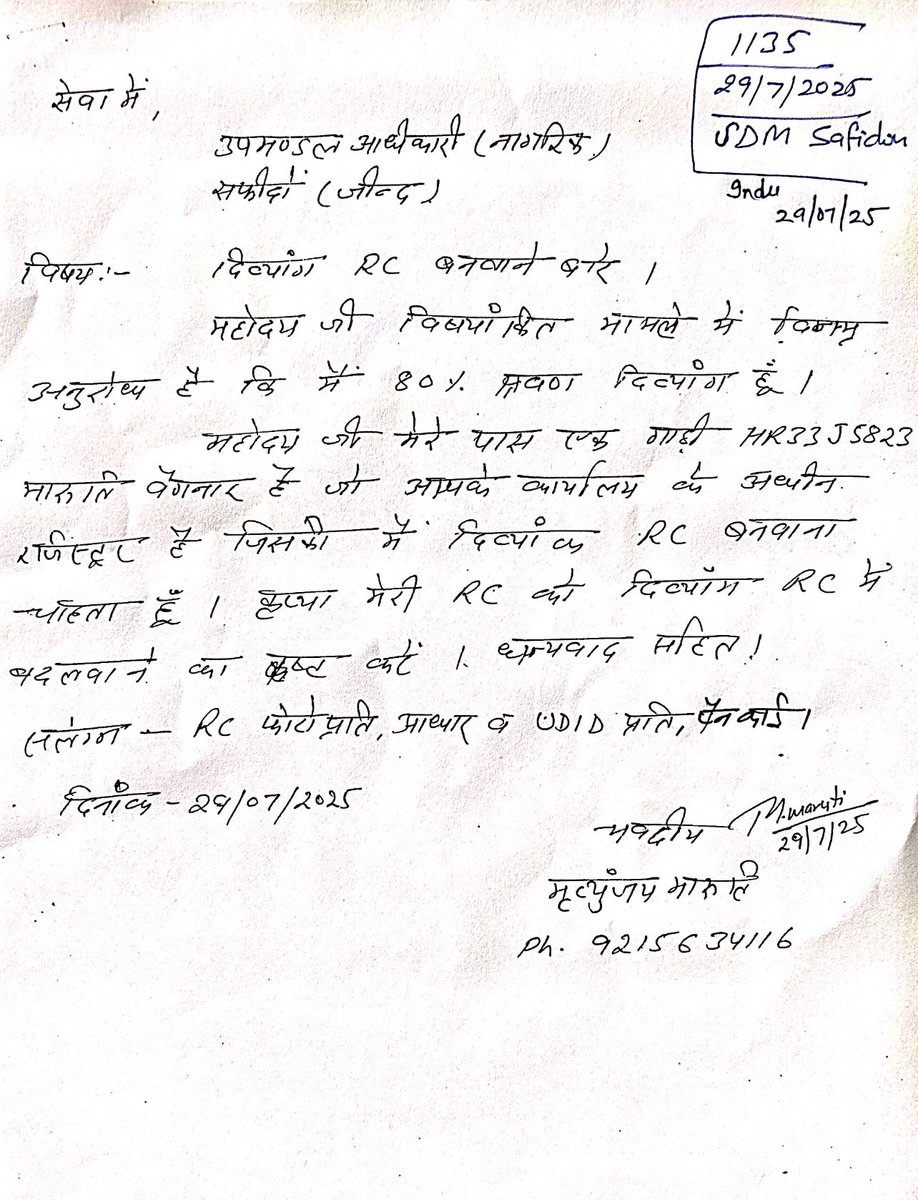 1135
29/7/2025
SDM Safidon
Indu
29/07/25
सेवा में,
उपमण्डल अधिकारी (नागरिक)
सफीदों (जीन्द)
विषय:- दिव्यांग RC बनवाने बारे ।
महोदय जी विषयांकित मामले में विनम्र
अनुरोध है कि मैं 80% श्रवण दिव्यांग हूँ ।
महोदय जी मेरे पास एक गाड़ी HR33J5823
मारुति वैगनार है जो आपके कार्यालय के अधीन
रजिस्टर है जिसकी मैं दिव्यांक RC बनवाना
चाहता हूँ । कृप्या मेरी RC को दिव्यांग RC में
बदलवाने का कष्ट करें । धन्यवाद सहित ।
सलंग्न - RC फोटोप्रति, आधार व UDID प्रति, पैन कार्ड ।
दिनांक - 29/07/2025
भवदीय M.maruti
29/7/25
मृत्युंजय मारुति
Ph. 9215634116